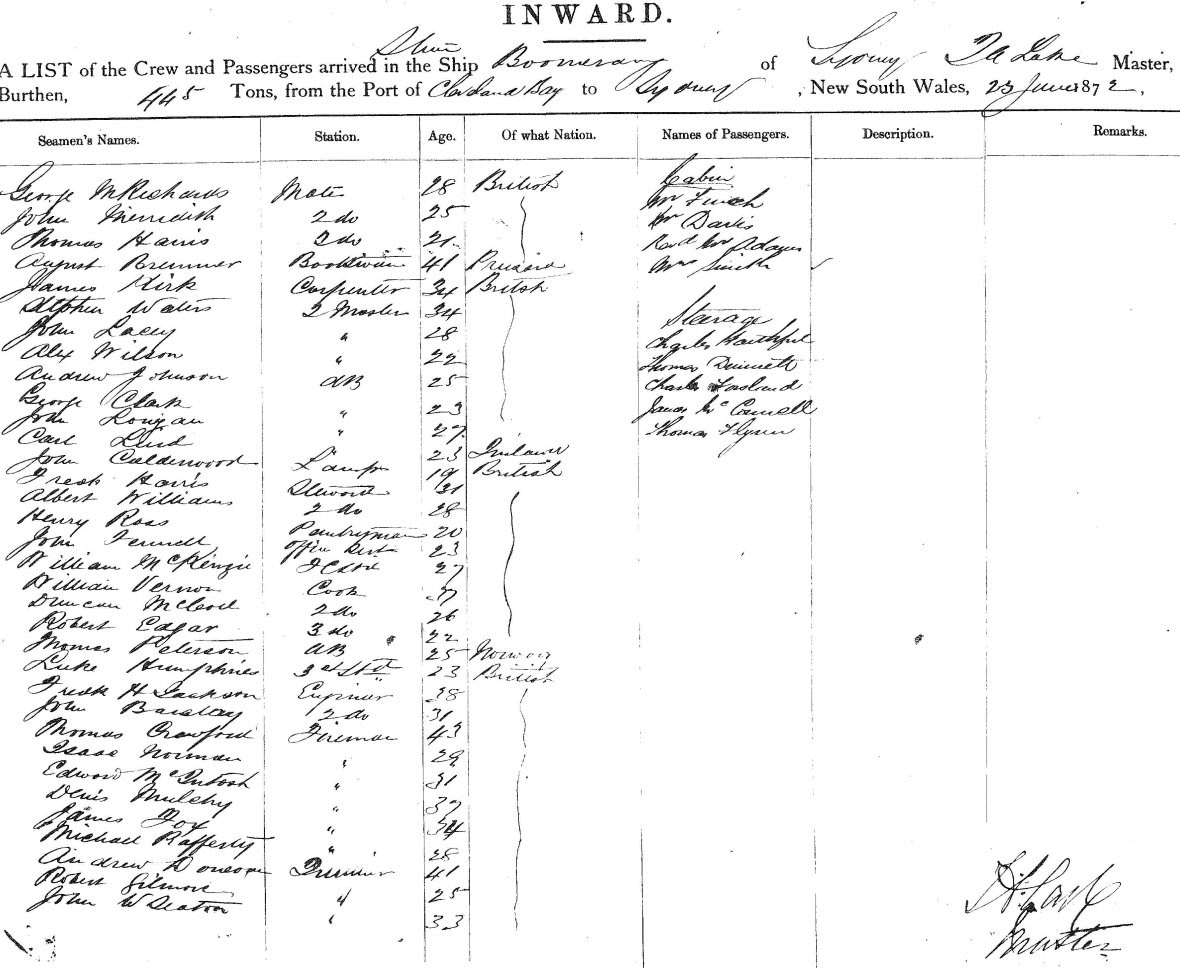 INWARD.
A LIST of the Crew and Passengers arrived in the Ship Boomerang of Sydney Lake Master,
Burthen, 445 Tons, from the Port of Cleveland Bay to Sydney, New South Wales, 23 June 1872,
Seamen's Names. Station. Age. Of what Nation. Names of Passengers. Description. Remarks.
Cabin
George M Richards Mate 28 British Mr Finch
John Merredith 2 do 25 Mr Davis
Thomas Harris 3 do 21 Revd Mr Adams
August Bremmer 41 Prussia Mrs Smith
James Kirk Carpenter 34 British
Stephen Waters 2 Master 34 Stearage
John Lacey " 28 Charles Faithful
Alex Wilson " 22 Thomas Dennett
Andrew Johnson AB 25 Charles
George Clark " 23 James McConnell
John Longan " 27 Thomas Flynn
Carl Lind " 23
John Calderwood Lamps 19 British
Fredk Harris Steward 31
Albert Williams 2 do 28
Henry Ross Pantryman 20
John Fennell 23
William McKenzie 27
William Vernon Cook 37
Duncan McLeod 2 do 26
Robert Edgar 3 do 22
Thomas Peterson AB 25 Norway
Luke Humphries 3rd Std 23 British
Fredk H Jackson Engineer 38
John Barclay 2 do 31
Thomas Crawford Fireman 43
Isaac Norman " 29
Edward McIntosh " 31
Denis Mulchy " 37
James Fox " 34
Michael Rafferty " 28
Andrew Trimmer 41
Robert Gilmore " 25
John W Seaton " 33
Master